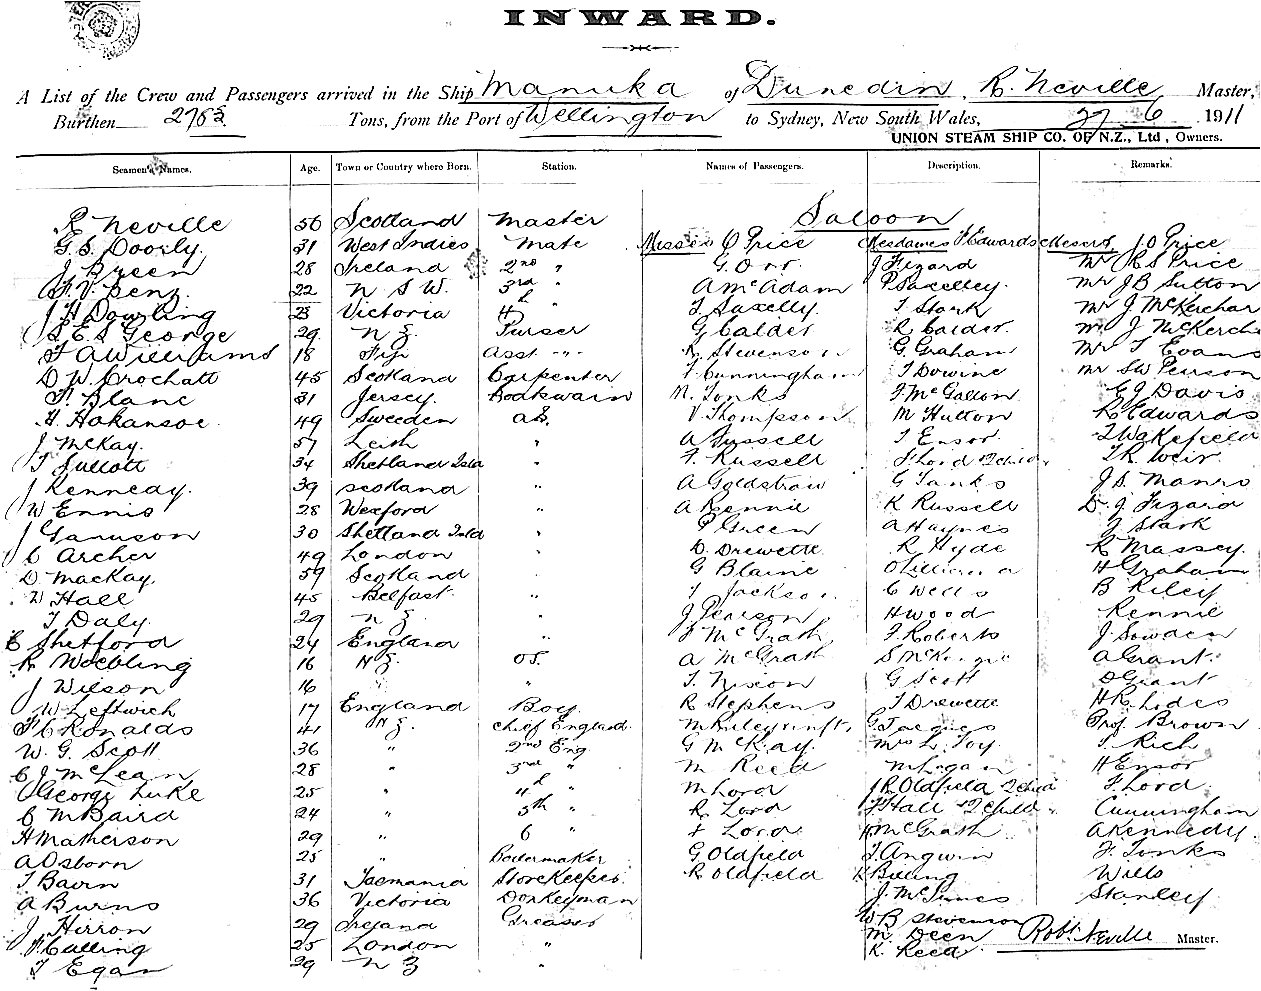 INWARD.
A List of the Crew and Passengers arrived in the Ship Manuka of Dunedin, R. Neville Master,
Burthen 2783 Tons, from the Port of Wellington to Sydney, New South Wales, 27 6 1911
UNION STEAM SHIP CO. OF N.Z., Ltd, Owners.
Seamen's Names. Age. Town or Country where Born. Station. Names of Passengers. Description. Remarks.
Saloon
R Neville 56 Scotland Master
G. S. Doorly. 31 West Indies Mate Misses O Price Mesdames Edwards Messrs J. O Price
J Breen 28 Ireland 2nd " G. Orr. J Fizard Mr R S Price
22 N S W. 3rd " A McAdam P Saxelley. Mr J B Sutton
J H Dowling 23 Victoria 4 Saxelly T Stark Mr J. McKerchar
S. E. S George 29 N Z Purser G Calder R Calder. Mr J McKerch
F A Williams 18 Fiji Asst. " R Stevenson G. Graham Mr T Evans
D. W. Crochatt 45 Scotland Carpenter F Cunningham T Dowine Mr S W Pearson
F. Blanc 31 Jersey. Boatswain N. Tonks F McGallon E J Davis
H. Hakansoe 49 Sweeden A.B. V Thompson M Hutton R Edwards
J McKay. 57 Leith " A Russell T Ensor. T Wakefield
T 34 Shetland Isld " F. Russell F Lord + 2 child. T R Weir.
J Kennedy. 39 Scotland " A Goldstraw G Tonks J. S. Manro
W Ennis 28 Wexford " A Rennie K Russell D. J Fizard
J 30 Shetland Isld " P Green A Haynes J Stark
C Archer 49 London " D. Drewette R Hyde R Massey.
D MacKay 59 Scotland " G Blaine O H Graham
W Hall 45 Belfast " T Jackson C Wells B Riley
T Daly 29 N Z " J Pearson H Wood Rennie
C Shetford 24 England " F McGrath F. Roberts J Sowden
R Woebling 16 N Z. OS. A McGrath S McKenzie A Grant.
J Wilson 16 " " T. Nixon G Scott D Grant
W Leftwich 17 England Boy. R Stephens T Drewette H R Lides
F C Ronalds 41 N Z. Chief England. M Riley G Jacques Prof. Brown
W. G. Scott 36 " 2nd Eng G McKay. Mrs L. Toy T Rich
C J McLean 28 " 3rd " M Reed M Logan H Ensor
George Luke 25 " 4 " M Lord R Oldfield 2 child F. Lord
C M Baird 24 " 5th " R Lord F Hall + 2 child " Cunningham
H Matherson 29 " 6 " F Lord H McGrath A Kennedy.
A Osborn 25 " Boilermaker G Oldfield T. Angwin F. Tonks
T Bavin 31 Tasmania Storekeeper R Oldfield K Billing Wills
A Burns 36 Victoria Donkeyman J. McInnes Stanley
J Hirron 29 Ireland Greaser W B Stevenson
Culling 25 London " M. Deen Robt Neville Master.
T Egan 29 N Z " K. Reed